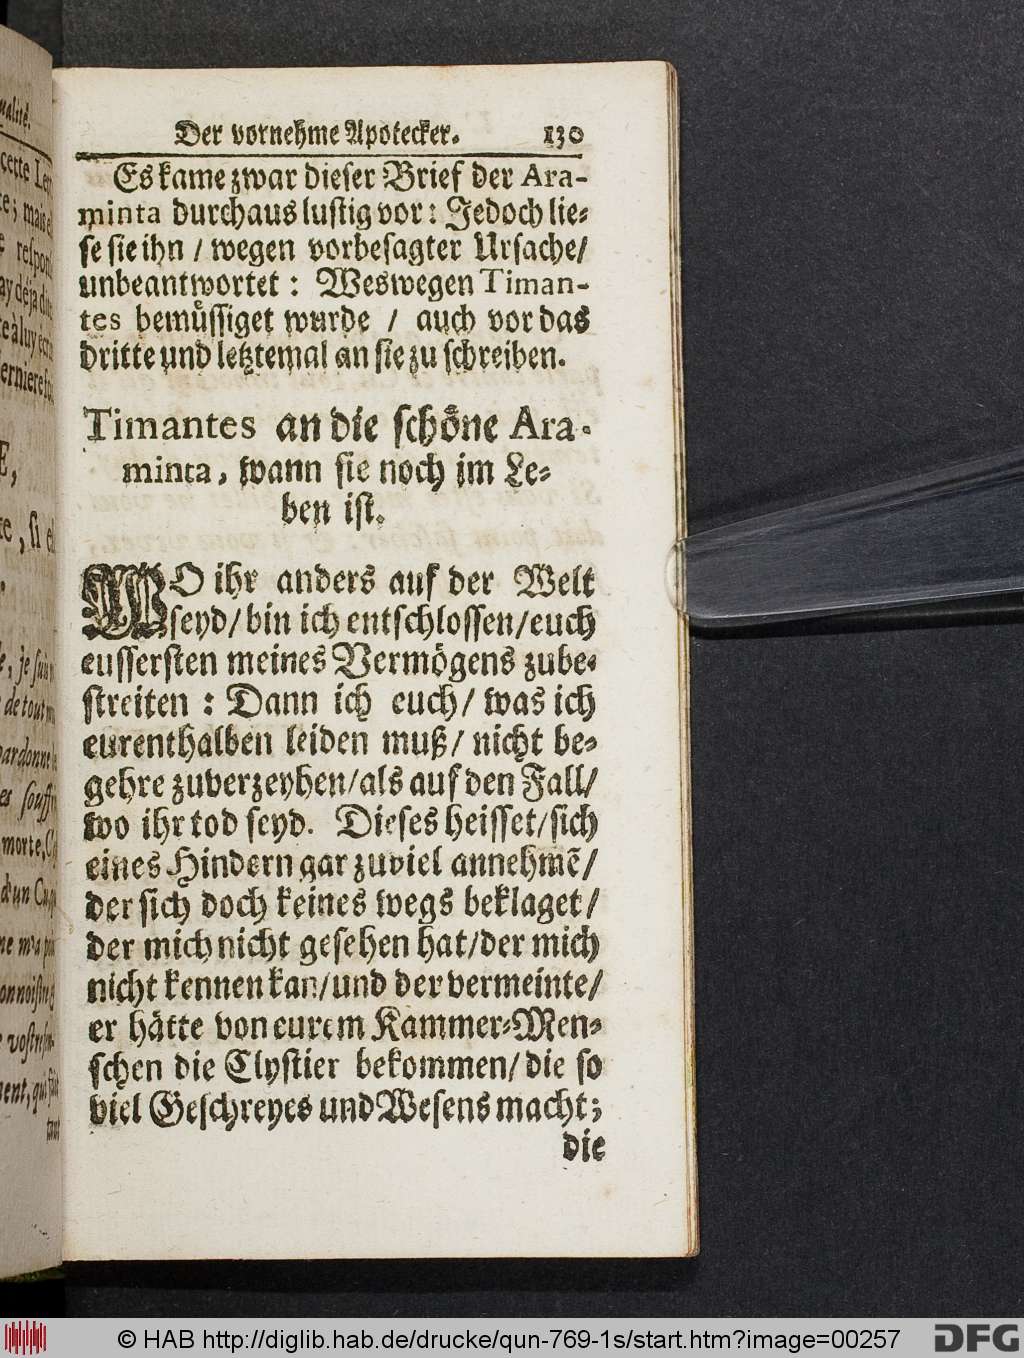 Der vornehme Apotecker. 130
Es kame zwar dieser Brief der Ara-
minta durchaus lustig vor: Jedoch lie-
se sie ihn / wegen vorbesagter Ursache/
unbeantwortet: Weswegen Timan-
tes bemüssiget wurde / auch vor das
dritte und letztemal an sie zu schreiben.
Timantes an die schöne Ara-
minta, wann sie noch im Le-
ben ist.
WO ihr anders auf der Welt
seyd/ bin ich entschlossen/ euch
eussersten meines Vermögens zube-
streiten: Dann ich euch/ was ich
eurenthalben leiden muß/ nicht be-
gehre zuverzeyhen/ als auf den Fall/
wo ihr tod seyd. Dieses heisset/ sich
eines Hindern gar zuviel annehmẽ/
der sich doch keines wegs beklaget/
der mich nicht gesehen hat/ der mich
nicht kennen kan/ und der vermeinte/
er hätte von eurem Kammer-Men-
schen die Clystier bekommen/ die so
viel Geschreyes und Wesens macht;
die
© HAB http://diglib.hab.de/drucke/qun-769-1s/start.htm?image=00257
DFG